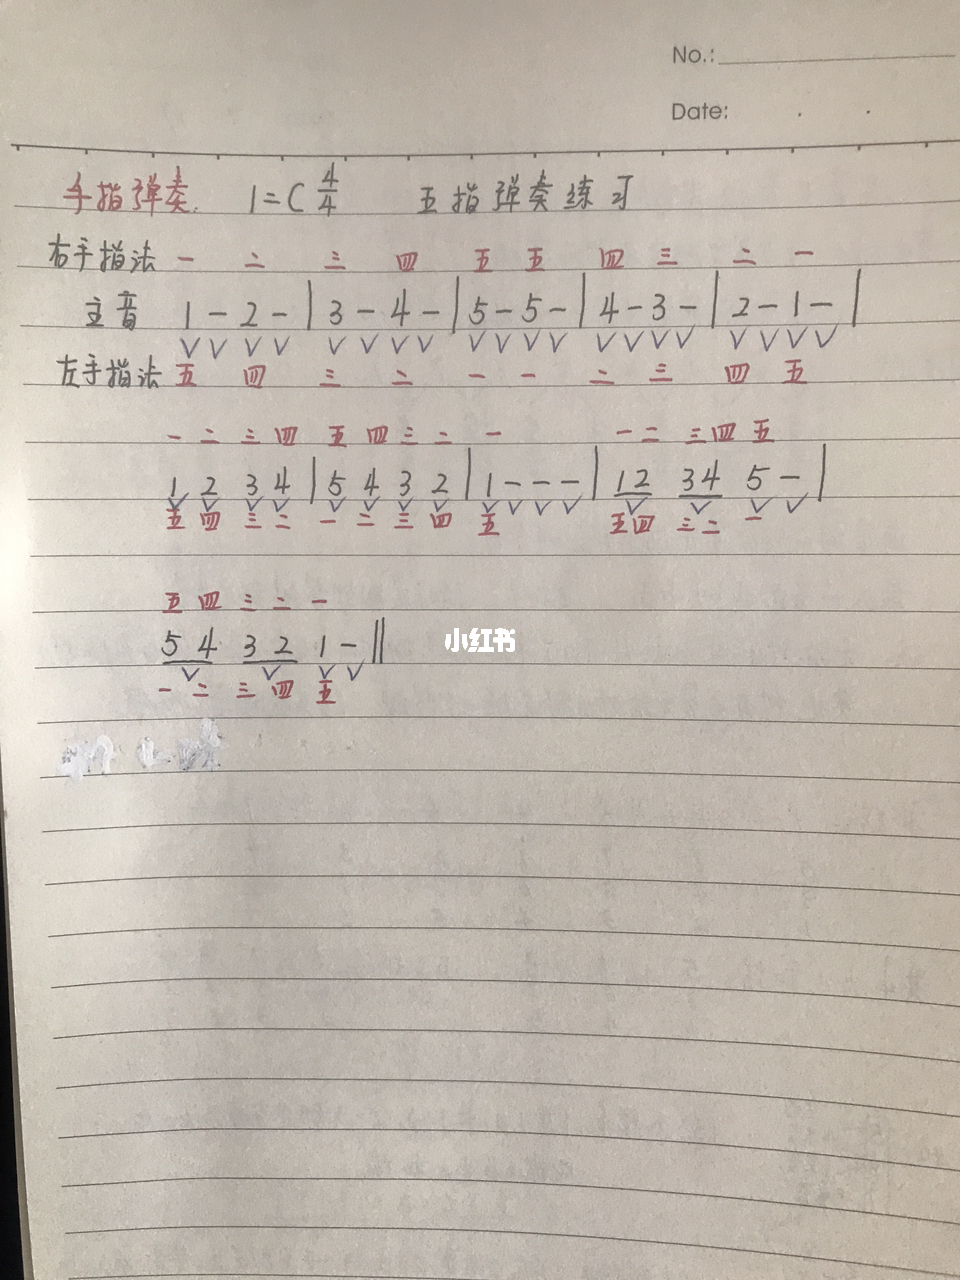 No.:
Date:
手指弹奏. 1=C 4/4 五指弹奏练习
右手指法 一 二 三 四 五 五 四 三 二 一
主音 1 - 2 - | 3 - 4 - | 5 - 5 - | 4 - 3 - | 2 - 1 - |
∨ ∨ ∨ ∨ ∨ ∨ ∨ ∨ ∨ ∨ ∨ ∨ ∨ ∨ ∨ ∨ ∨ ∨ ∨ ∨
左手指法 五 四 三 二 一 一 二 三 四 五
一 二 三 四 五 四 三 二 一 一 二 三 四 五
1 2 3 4 | 5 4 3 2 | 1 - - - | 12 34 5 - |
∨ ∨ ∨ ∨ ∨ ∨ ∨ ∨ ∨ ∨ ∨ ∨ ∨ ∨ ∨ ∨
五 四 三 二 一 二 三 四 五 五四 三二 一
五 四 三 二 一
5 4 3 2 1 - ‖
∨ ∨ ∨ ∨
一 二 三 四 五
小红书